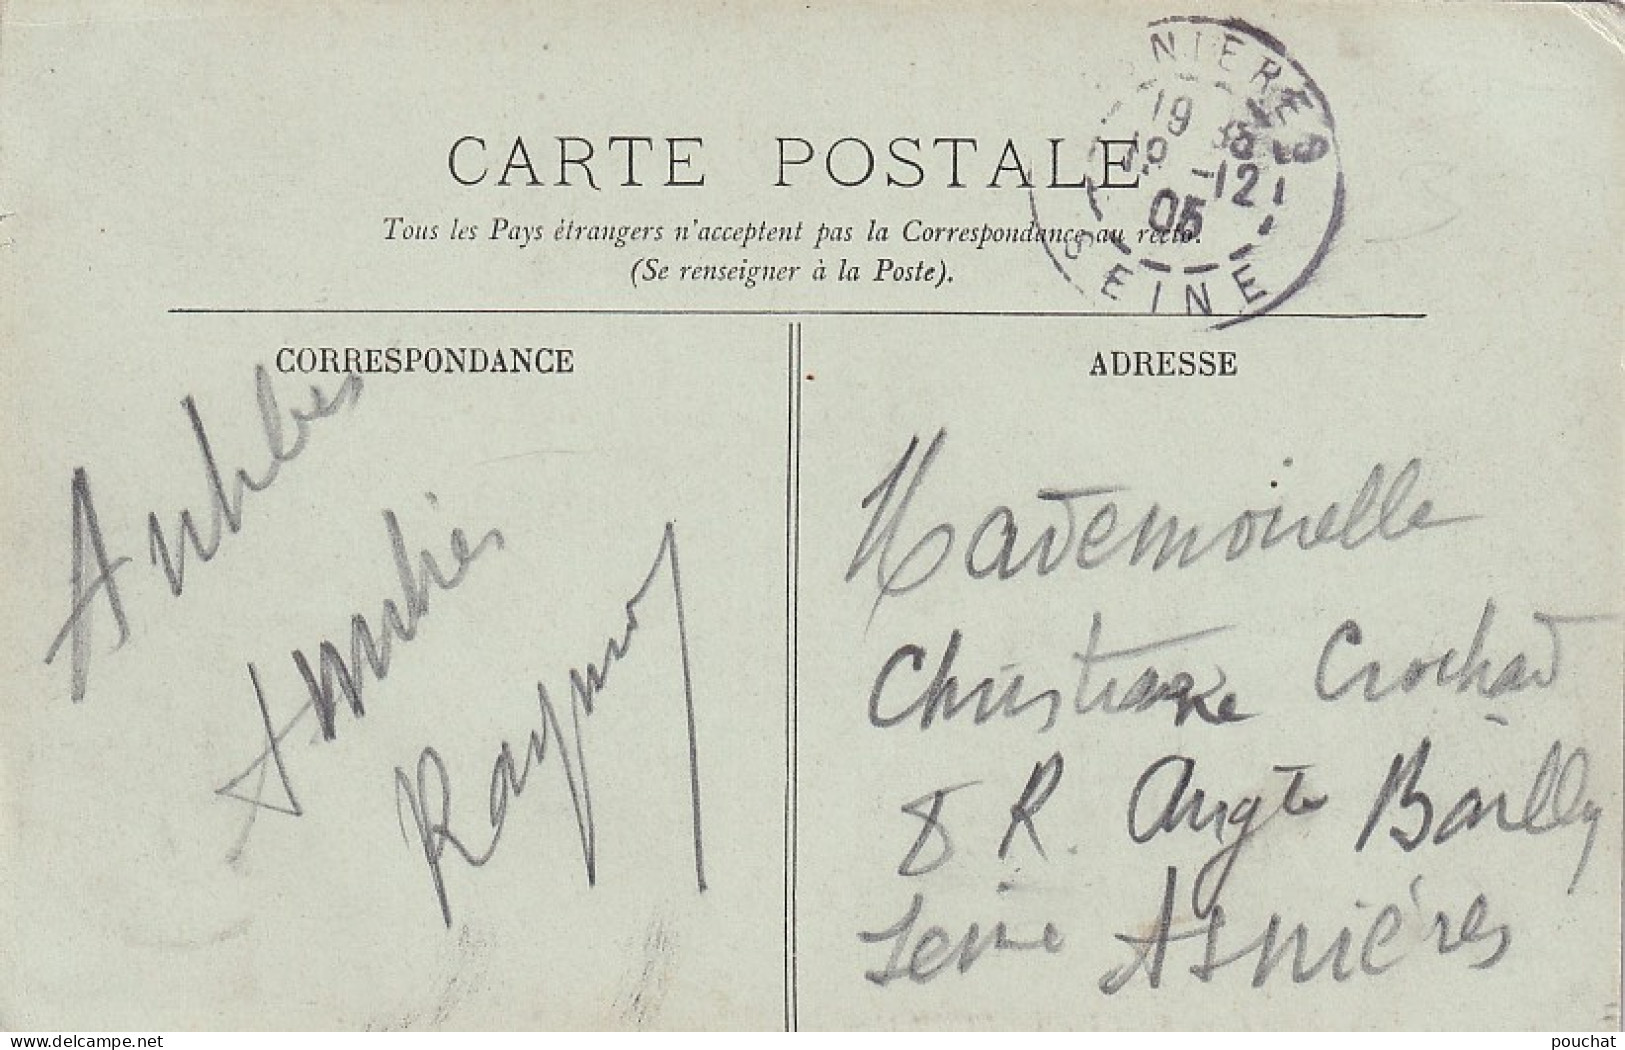 CARTE POSTALE
Tous les Pays étrangers n'acceptent pas la Correspondance au recto.
(Se renseigner à la Poste).
CORRESPONDANCE
ADRESSE
Amitiés
Raymond
Mademoiselle
Christiane Crochard
8 R. Augte Bailly
Seine Asnières
NIERES
19 8
12
05
SEINE
www.delcampe.net
pouchat